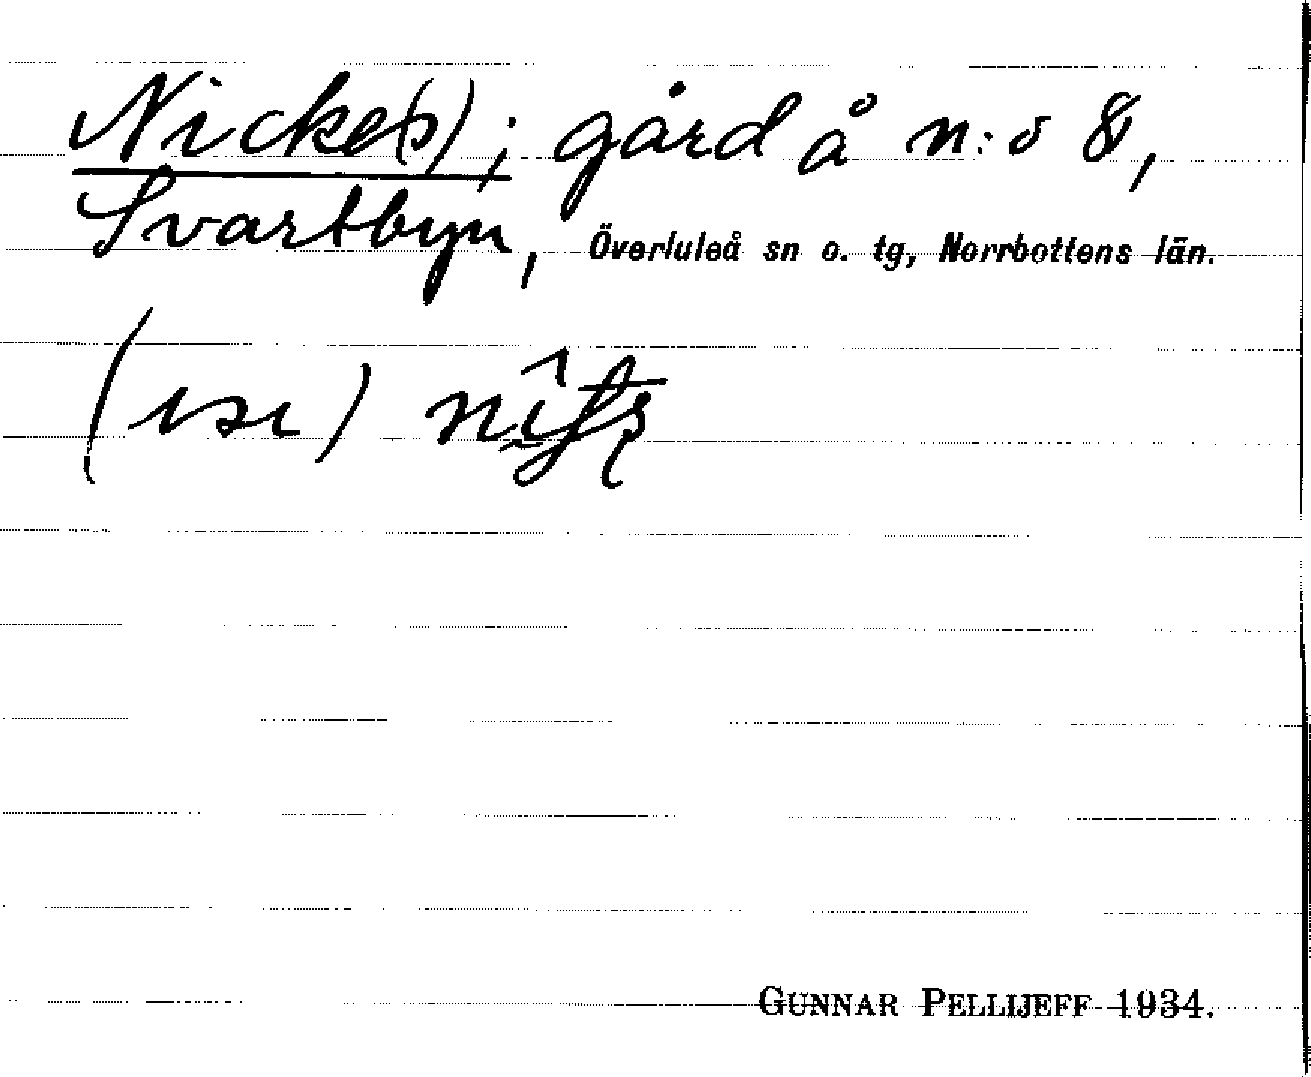 Nicke(s); gård å n:o 8,
Svartbyn, Överluleå sn o. tg, Norrbottens län.
GUNNAR PELLIJEFF 1934.